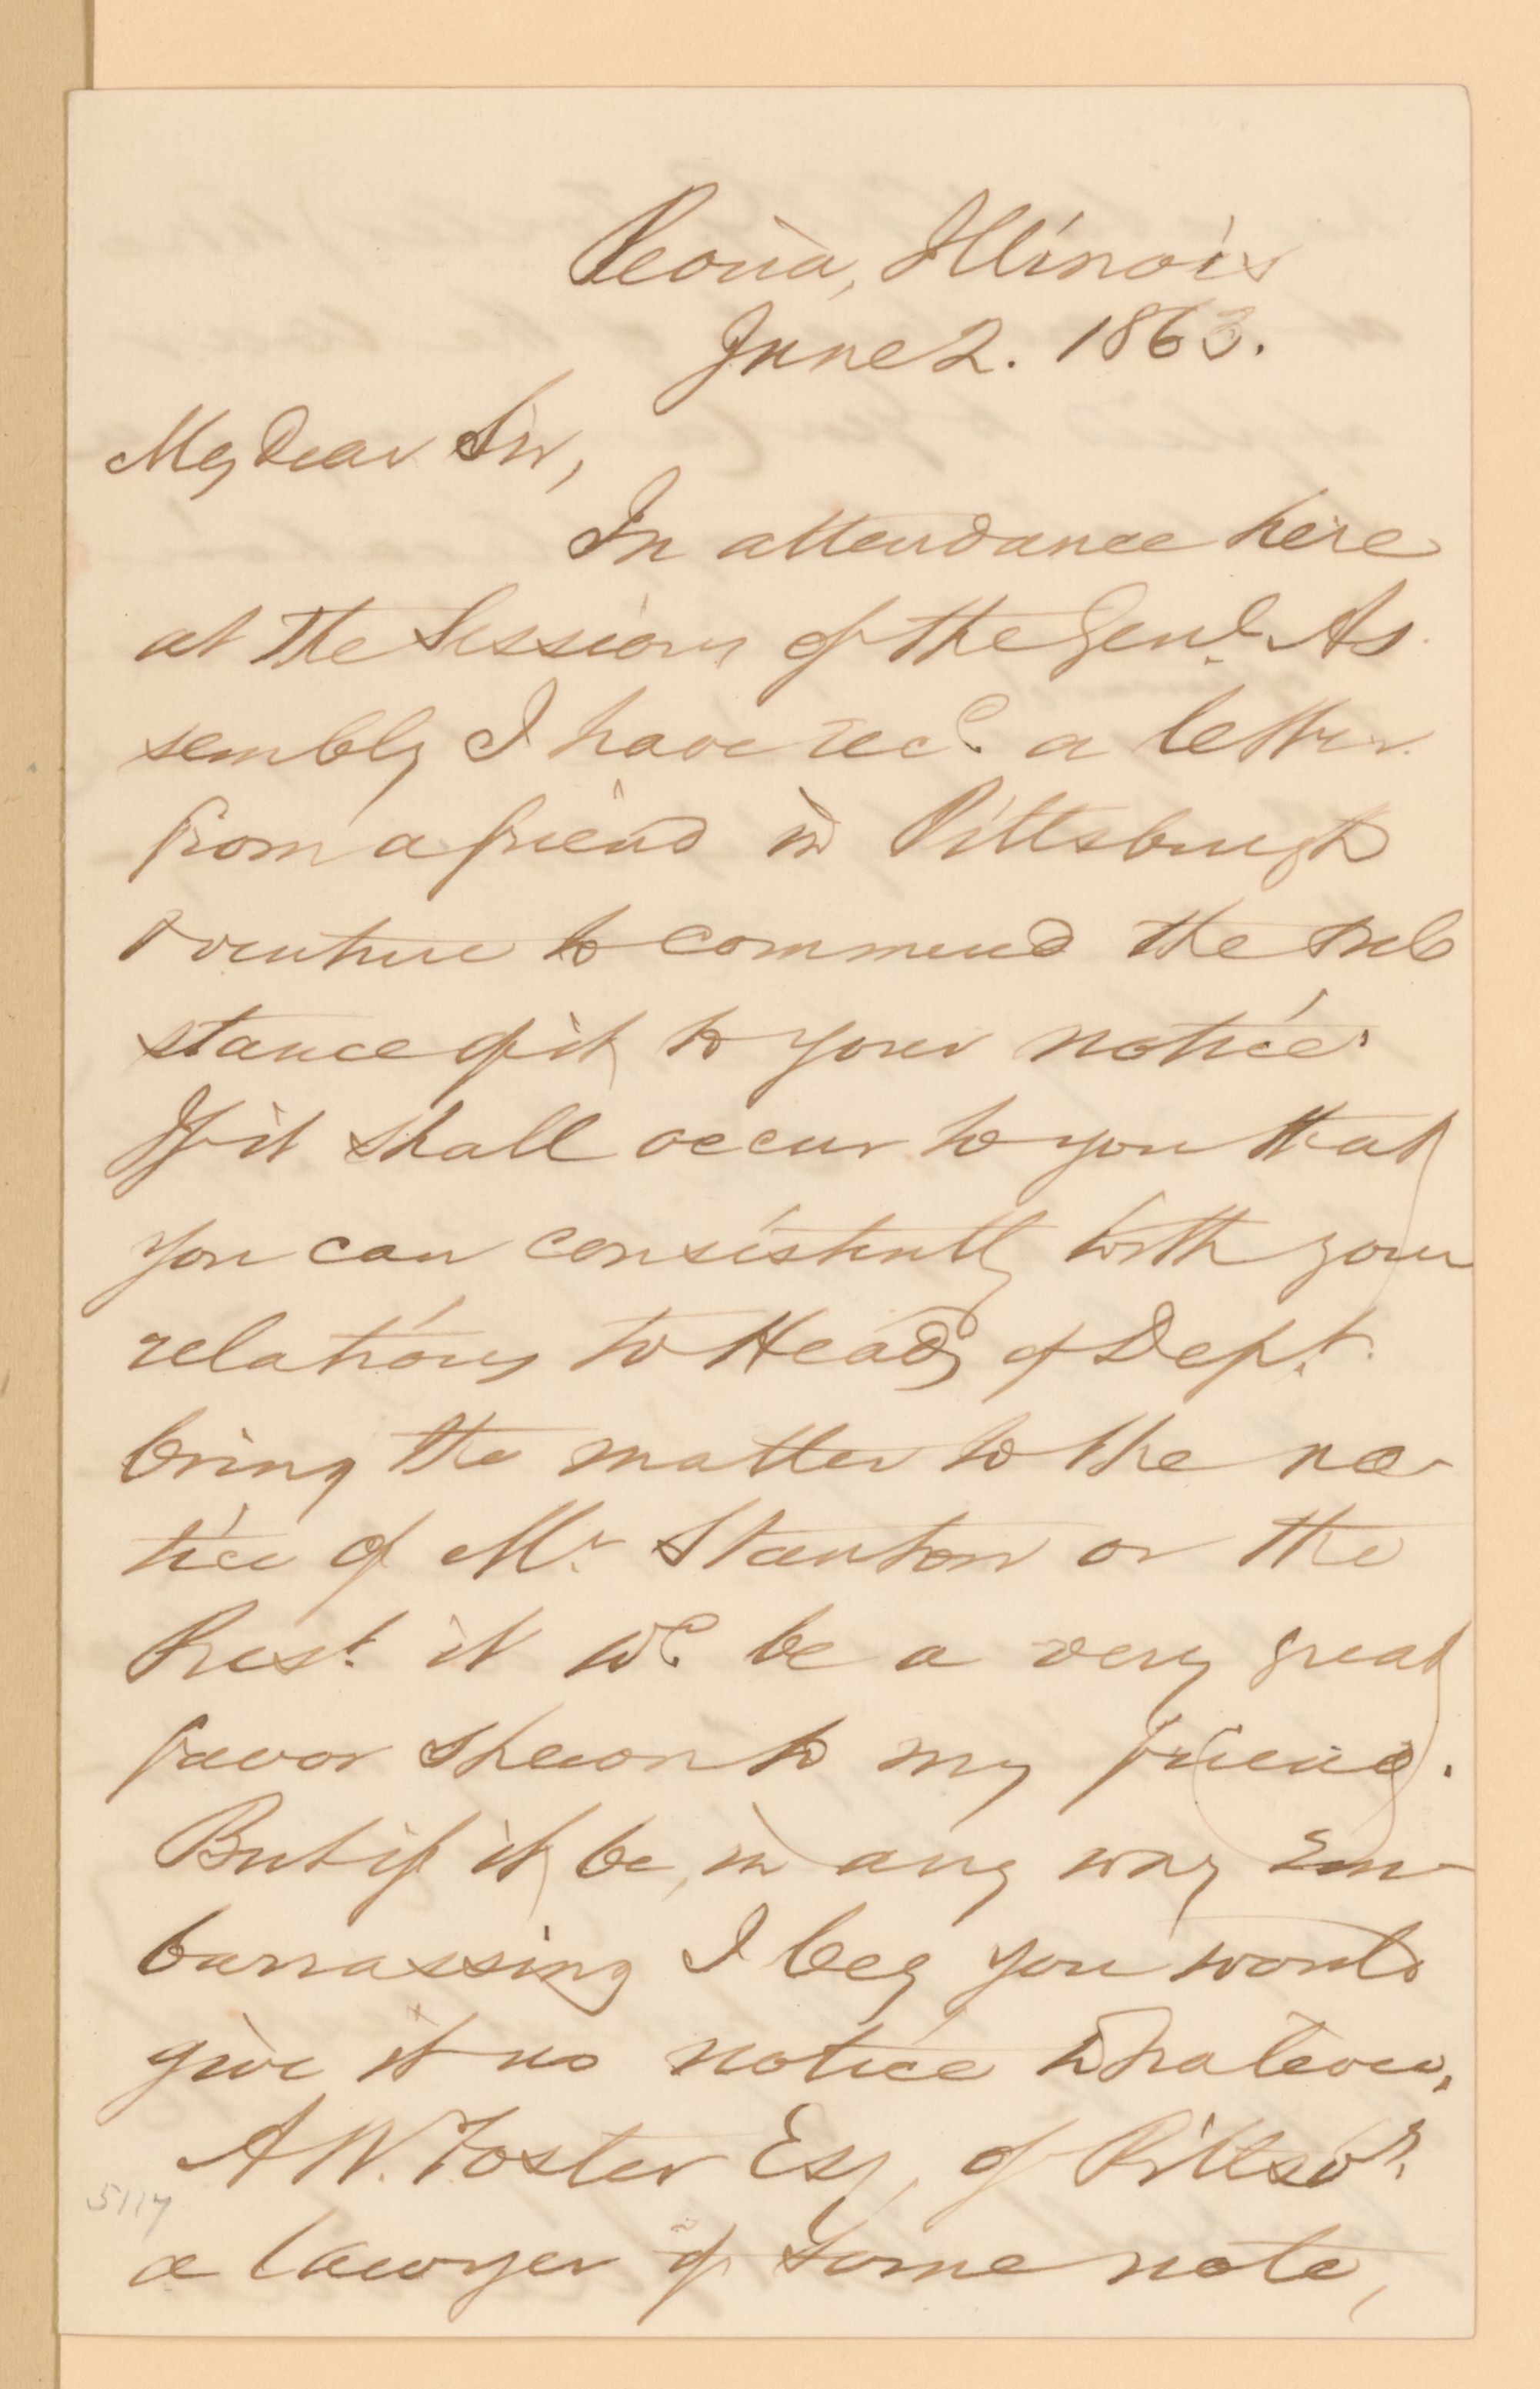 Peoria, Illinois
June 2. 1863.
My Dear Sir,
In attendance here
at the Sessions of the Genl. As
sembly I have recd. a letter
from a friend in Pittsburgh
& venture to commend the sub
stance of it to your notice.
If it shall occur to you that
you can consistently with your
relations to Heads of Dept.
bring the matter to the no-
tice of Mr. Stanton or the
Prest. it wd. be a very great
favor shewn to my friend.
But if it be, in any way em-
barrassing I beg you would
give it no notice whatever.
A W. Foster Esq, of Pittsbh.
a lawyer of some note,
5117